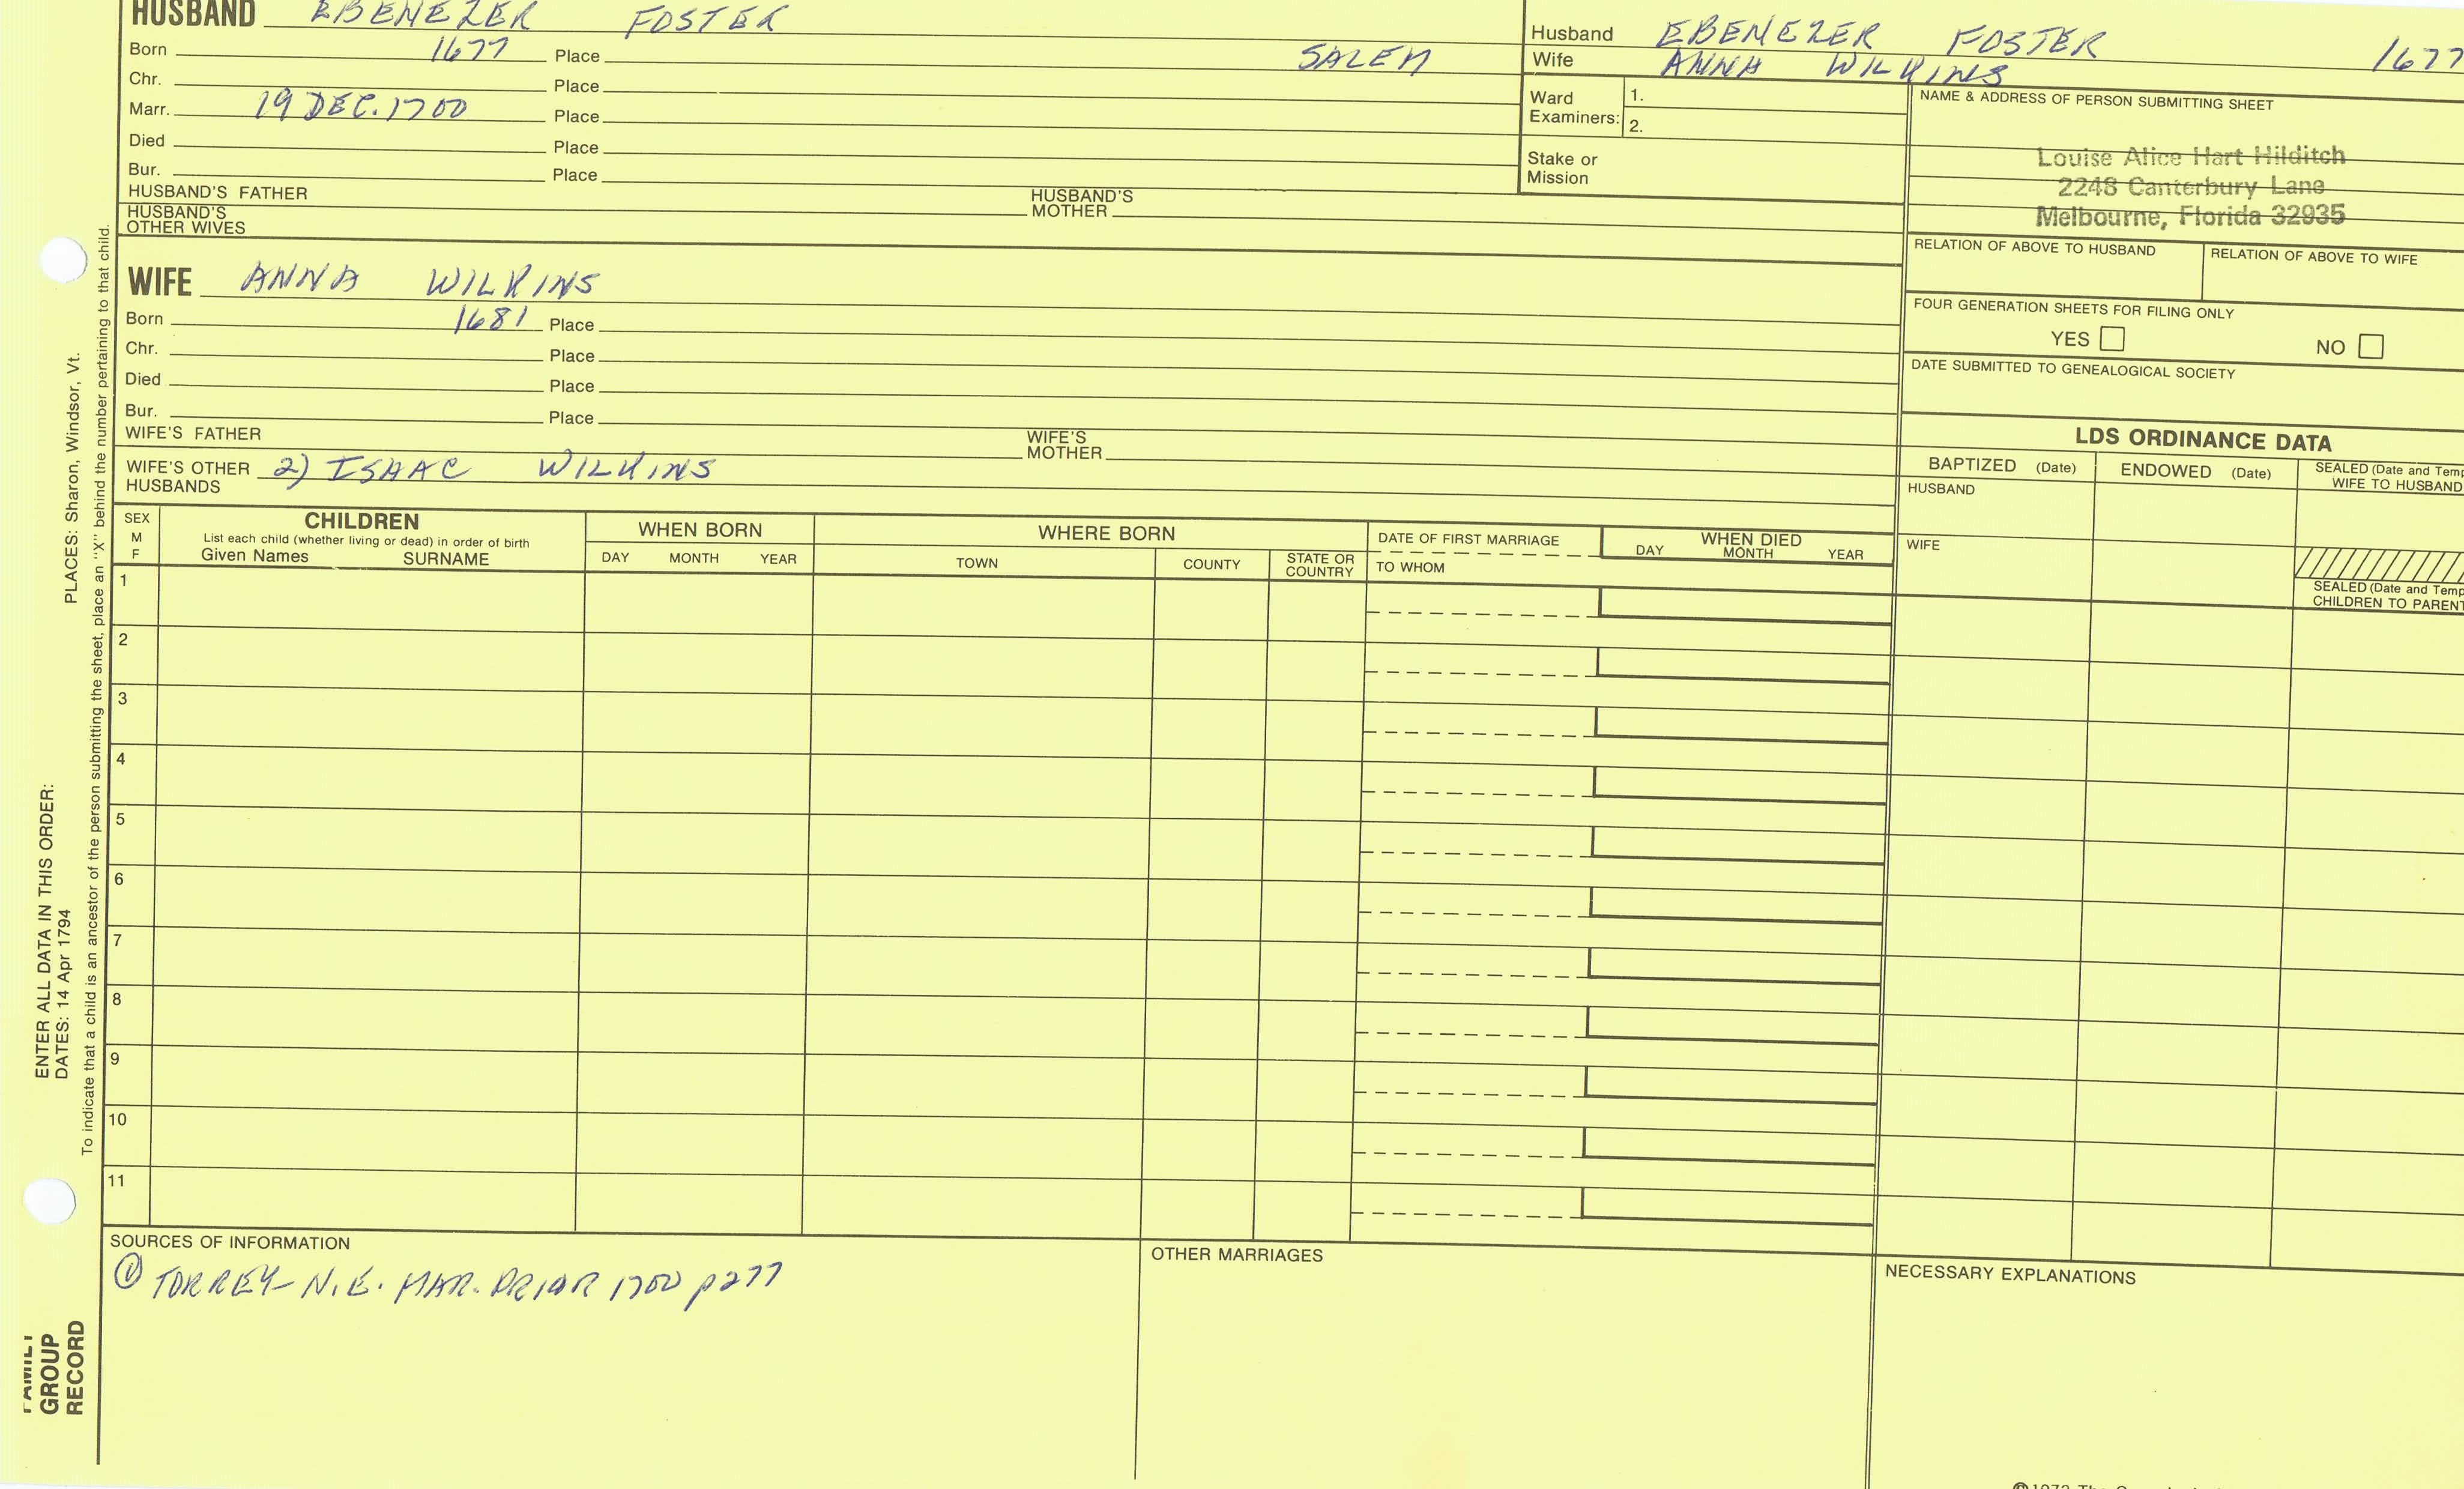 HUSBAND EBENEZER FOSTER
Born 1677 Place SALEM
Chr. Place
Marr. 19 DEC. 1700 Place
Died Place
Bur. Place
HUSBAND'S FATHER HUSBAND'S MOTHER
HUSBAND'S OTHER WIVES
Husband EBENEZER FOSTER 1677
Wife ANNA WILKINS
Ward Examiners: 1.
2.
Stake or Mission
NAME & ADDRESS OF PERSON SUBMITTING SHEET
Louise Alice Hart Hilditch
2248 Canterbury Lane
Melbourne, Florida 32935
RELATION OF ABOVE TO HUSBAND RELATION OF ABOVE TO WIFE
FOUR GENERATION SHEETS FOR FILING ONLY
YES NO
DATE SUBMITTED TO GENEALOGICAL SOCIETY
WIFE ANNA WILKINS
Born 1681 Place
Chr. Place
Died Place
Bur. Place
WIFE'S FATHER WIFE'S MOTHER
WIFE'S OTHER HUSBANDS 2) ISAAC WILKINS
LDS ORDINANCE DATA
BAPTIZED (Date) ENDOWED (Date) SEALED (Date and Temp
WIFE TO HUSBAND
HUSBAND
WIFE
SEALED (Date and Temp
CHILDREN TO PARENT
SEX
M
F
CHILDREN
List each child (whether living or dead) in order of birth
Given Names SURNAME
WHEN BORN
DAY MONTH YEAR
WHERE BORN
TOWN COUNTY STATE OR COUNTRY
DATE OF FIRST MARRIAGE
TO WHOM
WHEN DIED
DAY MONTH YEAR
1
2
3
4
5
6
7
8
9
10
11
SOURCES OF INFORMATION
① TORREY- N.E. MAR. PRIOR 1700 p277
OTHER MARRIAGES
NECESSARY EXPLANATIONS
PLACES: Sharon, Windsor, Vt.
To indicate that a child is an ancestor of the person submitting the sheet, place an "X" behind the number pertaining to that child.
ENTER ALL DATA IN THIS ORDER:
DATES: 14 Apr 1794
FAMILY
GROUP
RECORD